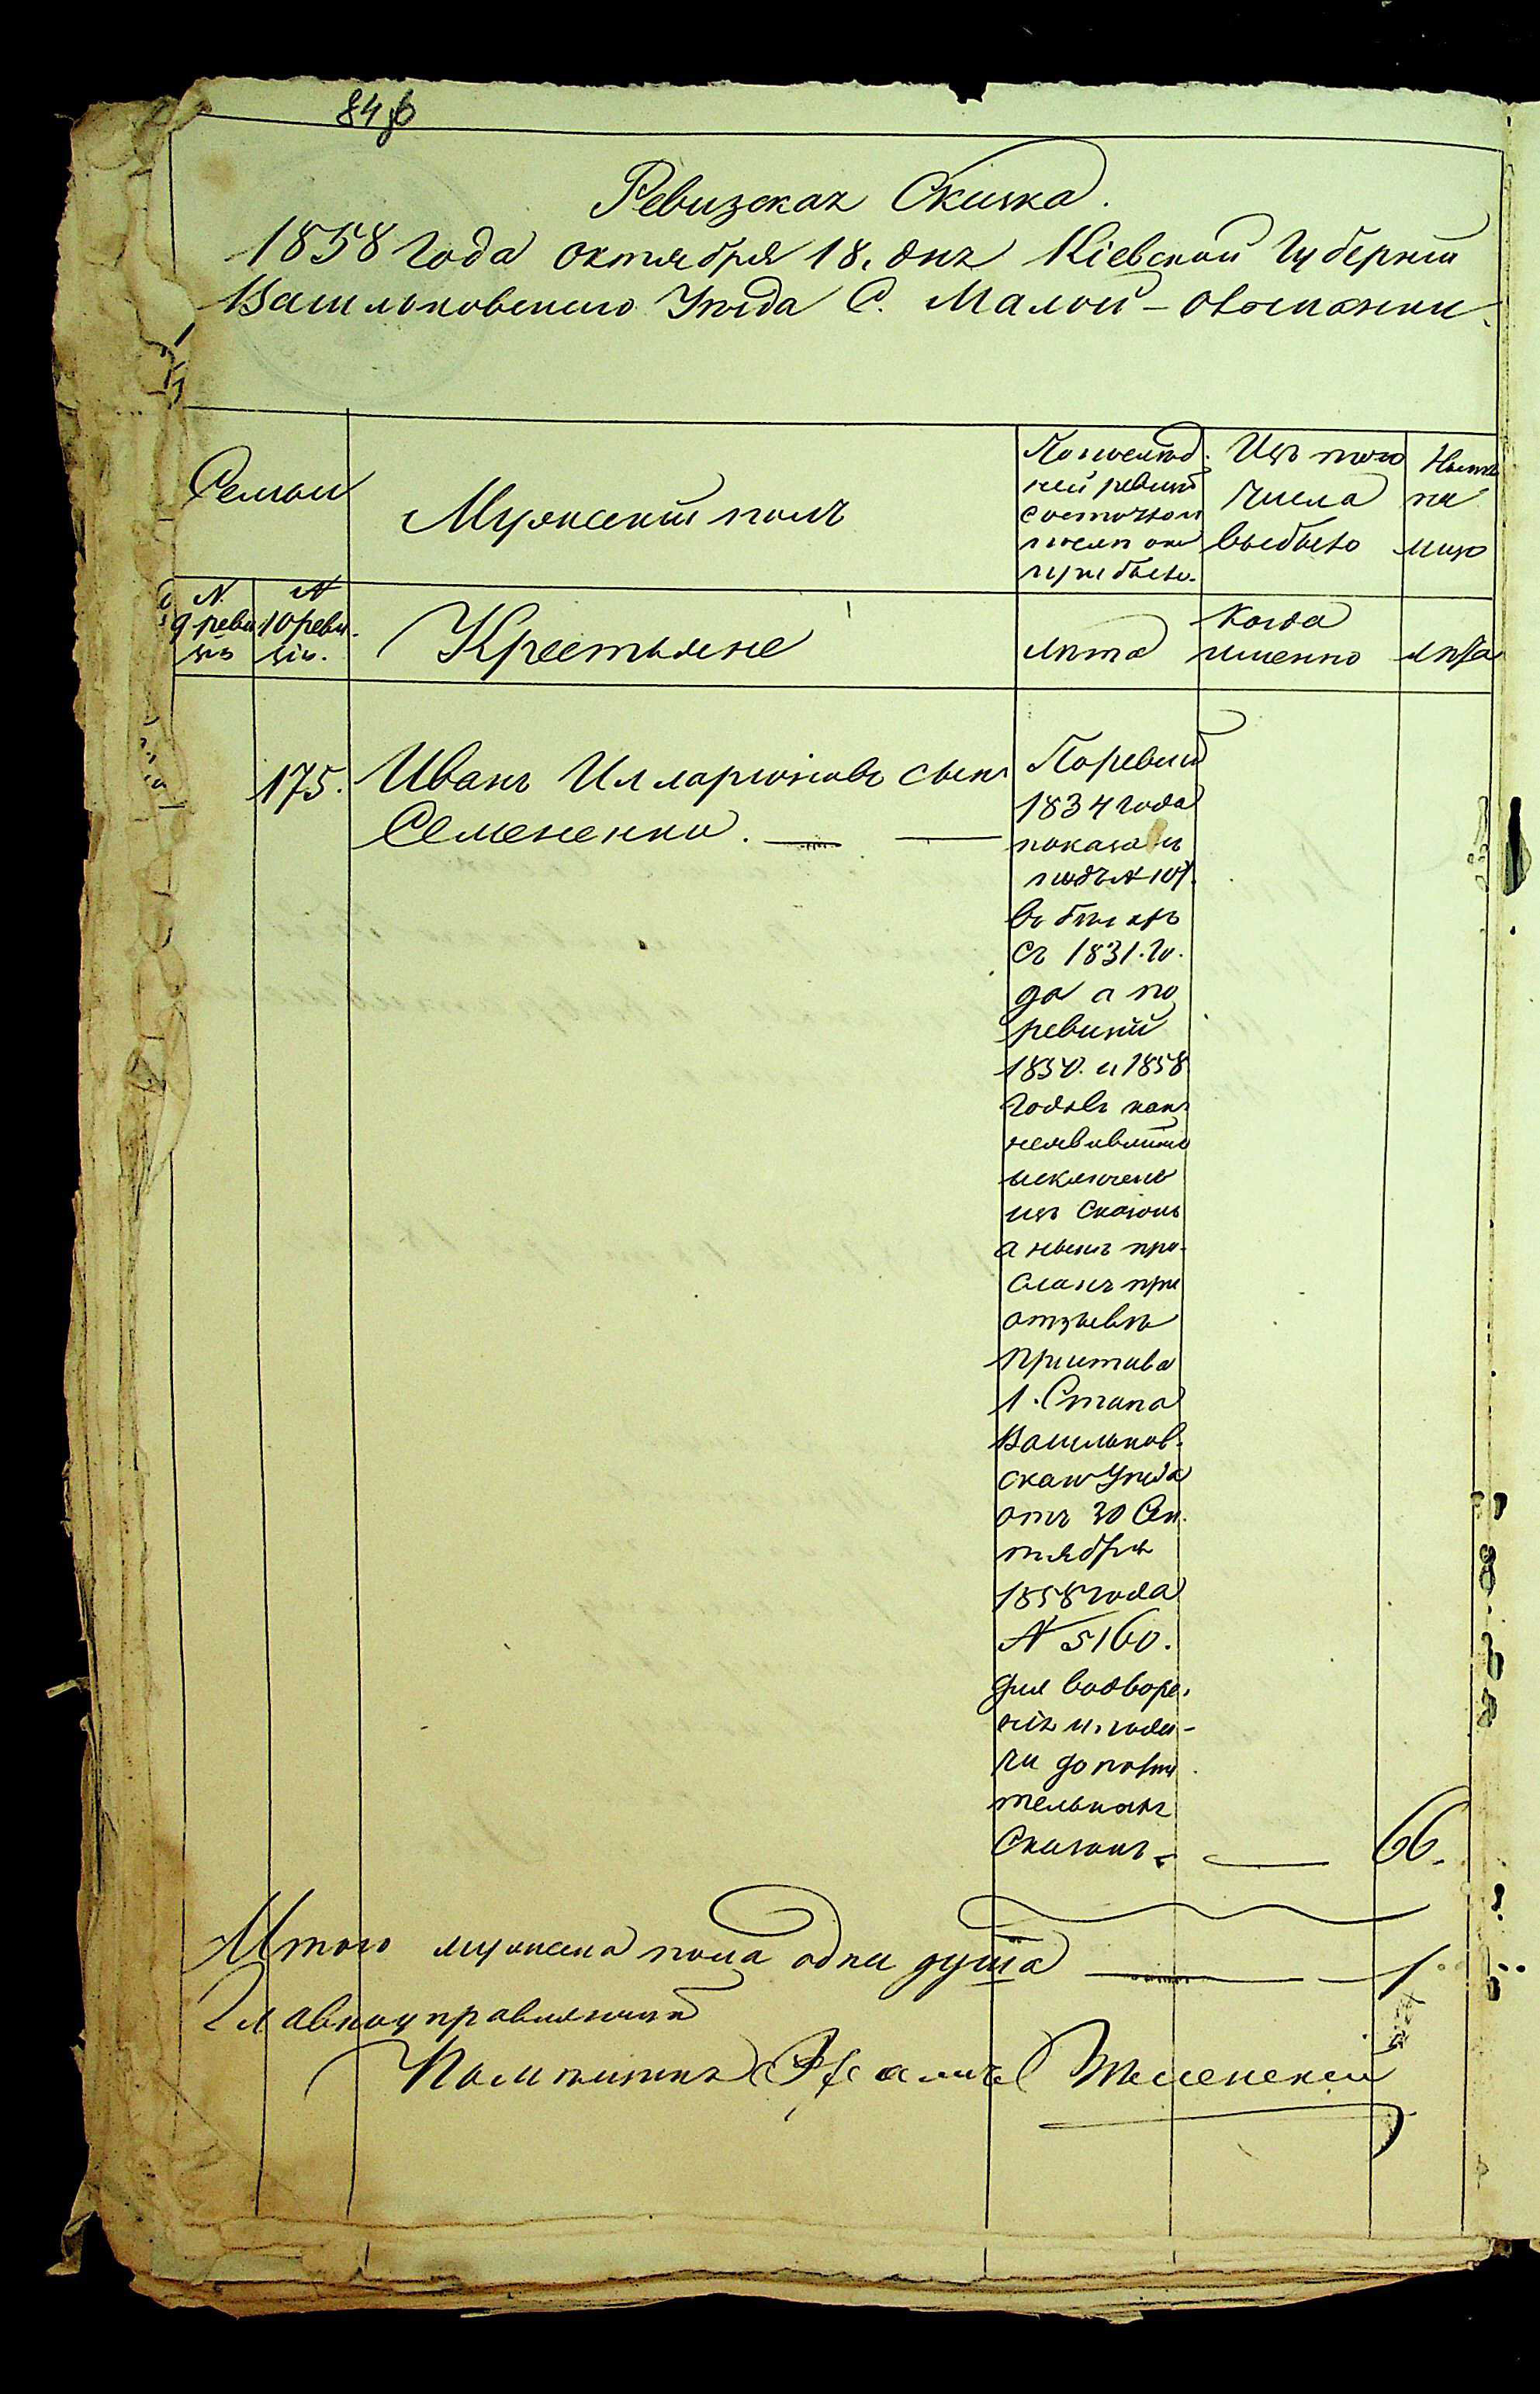 84 об
Ревизская Сказка.
1858 года октября 18. дня Кіевской Губерніи
Васильковского Уезда С. Малой-
Семьи
Мужеский полъ
По последней
ней ревизіи
состояло и
после оной
прибыло.
Изъ того
числа
выбыло
Ныне
на
лицо
N.
9 реви
зіи
N
10 реви.
зіи.
Крестьяне
лѣта
когда
именно
лѣта
175.
Иванъ Илларіоновъ сынъ
Семененко.
По ревизіи
1834 года
показанъ
подъ N
въ бѣгахъ
съ 1831. го.
да а по
ревизіи
1850. и 1858
годовъ какъ
неявившійся
исключенъ
изъ Сказокъ
а нынѣ при-
сланъ при
отзывѣ
пристава
1. Стана
Васильков.
скаго Уезда
отъ 30 Сен.
тября
1858 года
N 5160.
для водворе.
нія и пода-
чи дополни.
тельныхъ
Сказокъ.
66.
Итого мужеска пола одна душа 1
Главноуправляющій